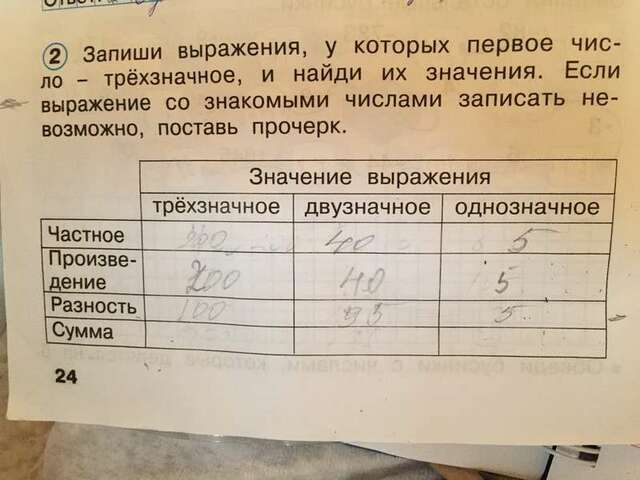 Ответ
2 Запиши выражения, у которых первое чис-
ло – трёхзначное, и найди их значения. Если
выражение со знакомыми числами записать не-
возможно, поставь прочерк.
Значение выражения
трёхзначное двузначное однозначное
Частное 40 5
Произве-
дение 200 40 5
Разность 100 95 5
Сумма
24